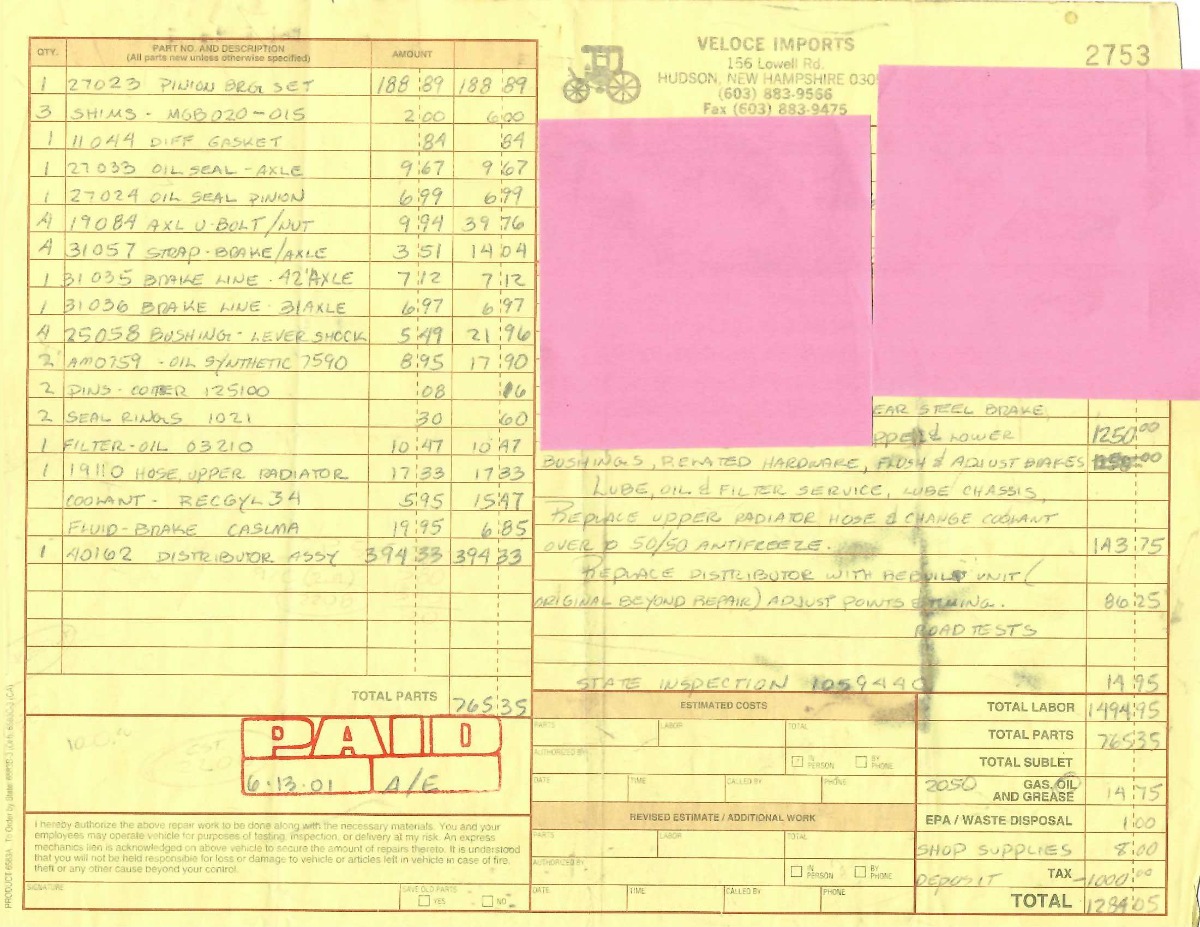 VELOCE IMPORTS
156 Lowell Rd.
HUDSON, NEW HAMPSHIRE 030
(603) 883-9566
Fax (603) 883-9475
2753
QTY. PART NO. AND DESCRIPTION (All parts new unless otherwise specified) AMOUNT
1 27023 PINION BRG SET 188 89 188 89
3 SHIMS - MGB020-015 2 00 6 00
1 11044 DIFF GASKET 84 84
1 27033 OIL SEAL - AXLE 9 67 9 67
1 27024 OIL SEAL PINION 6 99 6 99
4 19084 AXL U-BOLT/NUT 9 94 39 76
4 31057 STRAP - BRAKE/AXLE 3 51 14 04
1 31035 BRAKE LINE - 42"AXLE 7 12 7 12
1 31036 BRAKE LINE - 31AXLE 6 97 6 97
4 25058 BUSHING - LEVER SHOCK 5 49 21 96
2 AM0759 - OIL SYNTHETIC 7590 8 95 17 90
2 PINS - COTTER 125100 08 16
2 SEAL RINGS 1021 30 60
1 FILTER - OIL 03210 10 47 10 47
1 19110 HOSE, UPPER RADIATOR 17 33 17 33
COOLANT - RECGYL34 5 95 15 47
FLUID - BRAKE CASLMA 19 95 6 85
1 40162 DISTRIBUTOR ASSY 394 33 394 33
TOTAL PARTS 765 35
PAID
6-13-01 A/E
I hereby authorize the above repair work to be done along with the necessary materials. You and your
employees may operate vehicle for purposes of testing, inspection, or delivery at my risk. An express
mechanics lien is acknowledged on above vehicle to secure the amount of repairs thereto. It is understood
that you will not be held responsible for loss or damage to vehicle or articles left in vehicle in case of fire,
theft or any other cause beyond your control.
SIGNATURE SAVE OLD PARTS YES NO
EAR STEEL BRAKE
PPER & LOWER 1250 00
BUSHINGS, RELATED HARDWARE, FLUSH & ADJUST BRAKES 00
LUBE, OIL & FILTER SERVICE, LUBE CHASSIS,
REPLACE UPPER RADIATOR HOSE & CHANGE COOLANT
OVER TO 50/50 ANTIFREEZE. 143 75
REPLACE DISTRIBUTOR WITH REBUILT UNIT (
ORIGINAL BEYOND REPAIR) ADJUST POINTS & TIMING. 86 25
ROAD TESTS
STATE INSPECTION 1059440 14 95
ESTIMATED COSTS
PARTS LABOR TOTAL
AUTHORIZED BY IN PERSON BY PHONE
DATE TIME CALLED BY PHONE
REVISED ESTIMATE / ADDITIONAL WORK
PARTS LABOR TOTAL
AUTHORIZED BY IN PERSON BY PHONE
DATE TIME CALLED BY PHONE
TOTAL LABOR 1494 95
TOTAL PARTS 765 35
TOTAL SUBLET
2050 GAS, OIL AND GREASE 14 75
EPA / WASTE DISPOSAL 1 00
SHOP SUPPLIES 8 00
DEPOSIT TAX -1000 00
TOTAL 1284 05